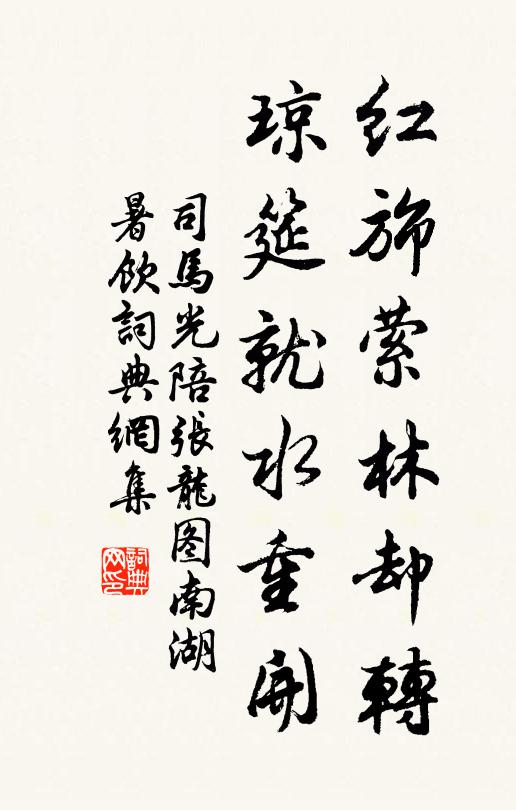 红旆萦林却轉
琼筵就水重開
司馬光陪張龍图南湖
暑飲詞典網集
詞典網印